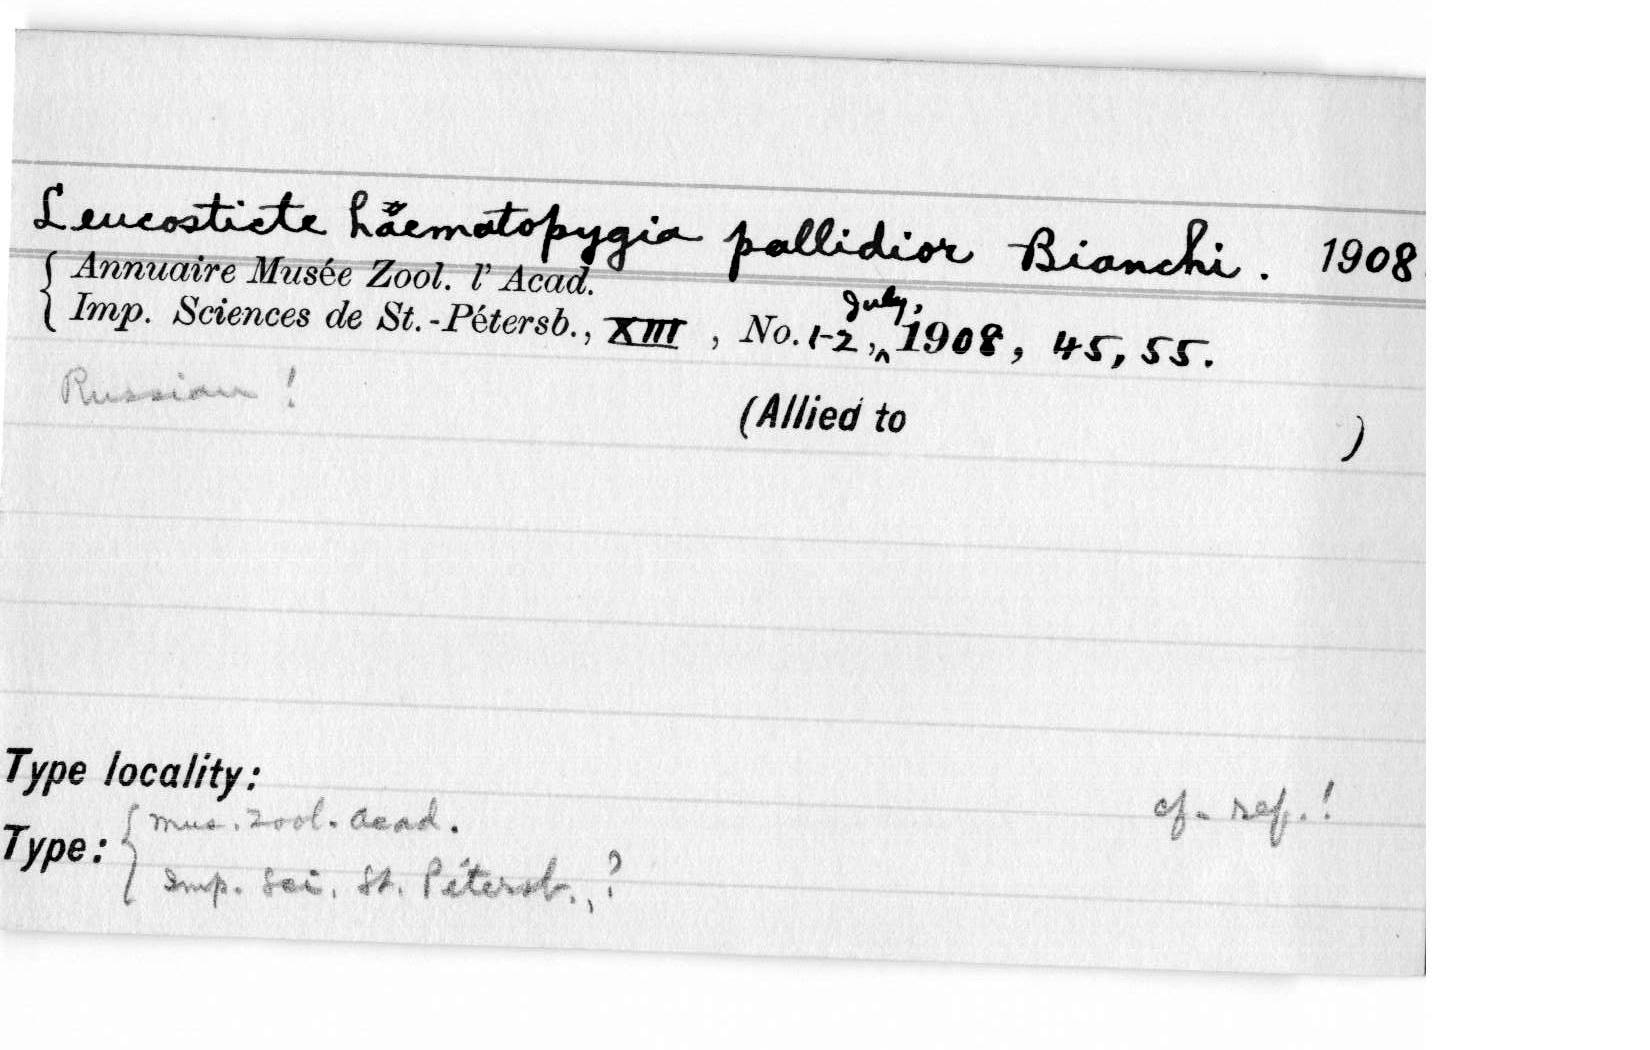 Leucosticte haematopygia pallidior Bianchi. 1908.
{ Annuaire Musée Zool. l' Acad.
Imp. Sciences de St.-Pétersb., XIII, No. 1-2, July, 1908, 45, 55.
Russian!
(Allied to )
Type locality:
cf. ref.!
Type: { Mus. Zool. Acad.
Imp. Sci. St. Pétersb., ?